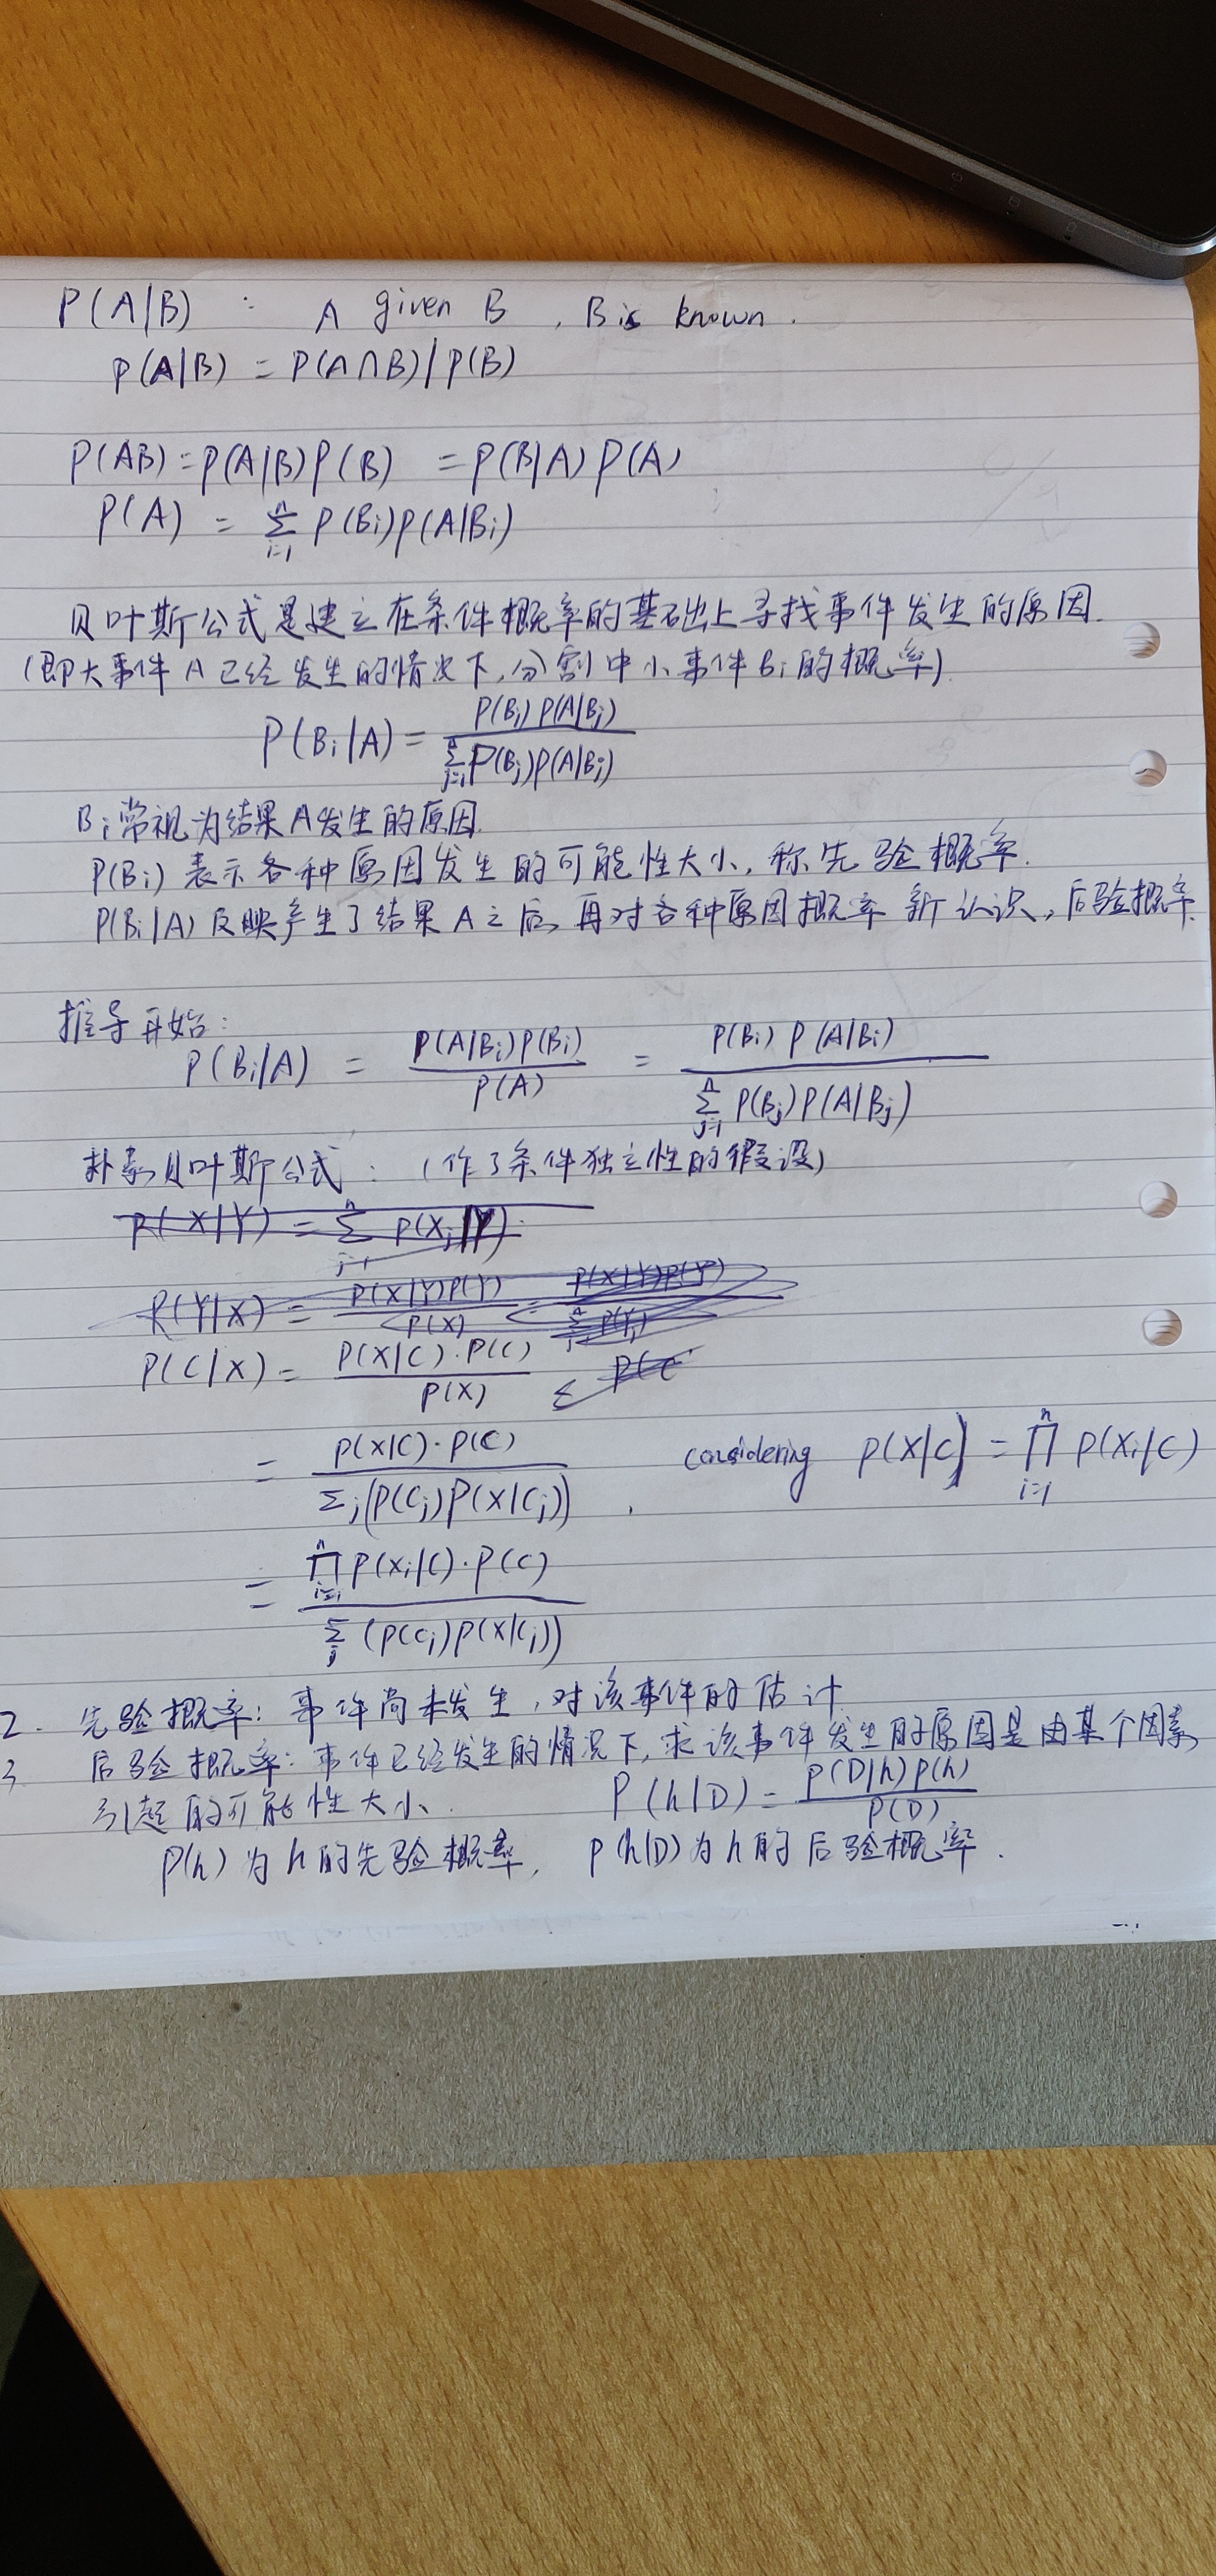 P(A|B) : A given B , B is known .
P(A|B) = P(A∩B)/P(B)
P(AB) = P(A|B)P(B) = P(B|A)P(A)
P(A) = Σ_{i=1}^{n} P(Bi)P(A|Bi)
贝叶斯公式是建立在条件概率的基础上寻找事件发生的原因.
(即大事件A已经发生的情况下,分割中小事件Bi的概率)
P(Bi|A) = P(Bi)P(A|Bi) / Σ_{j=1}^{n} P(Bj)P(A|Bj)
Bi常视为结果A发生的原因.
P(Bi) 表示各种原因发生的可能性大小,称先验概率.
P(Bi|A) 反映产生了结果A之后,再对各种原因概率新认识,后验概率.
推导开始:
P(Bi|A) = P(A|Bi)P(Bi) / P(A) = P(Bi)P(A|Bi) / Σ_{j=1}^{n} P(Bj)P(A|Bj)
朴素贝叶斯公式: (作了条件独立性的假设)
P(C|X) = P(X|C)·P(C) / P(X)
= P(X|C)·P(C) / Σj(P(Cj)P(X|Cj)) , considering P(X|C) = Π_{i=1}^{n} P(Xi|C)
= Π_{i=1}^{n} P(Xi|C)·P(C) / Σ_j (P(Cj)P(X|Cj))
2. 先验概率: 事件尚未发生,对该事件的估计
3 后验概率: 事件已经发生的情况下,求该事件发生的原因是由某个因素
引起的可能性大小. P(h|D) = P(D|h)P(h) / P(D)
P(h)为h的先验概率, P(h|D)为h的后验概率.